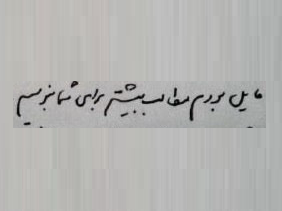 مایل بودم مطالب بیشتر برای شما بنویسم